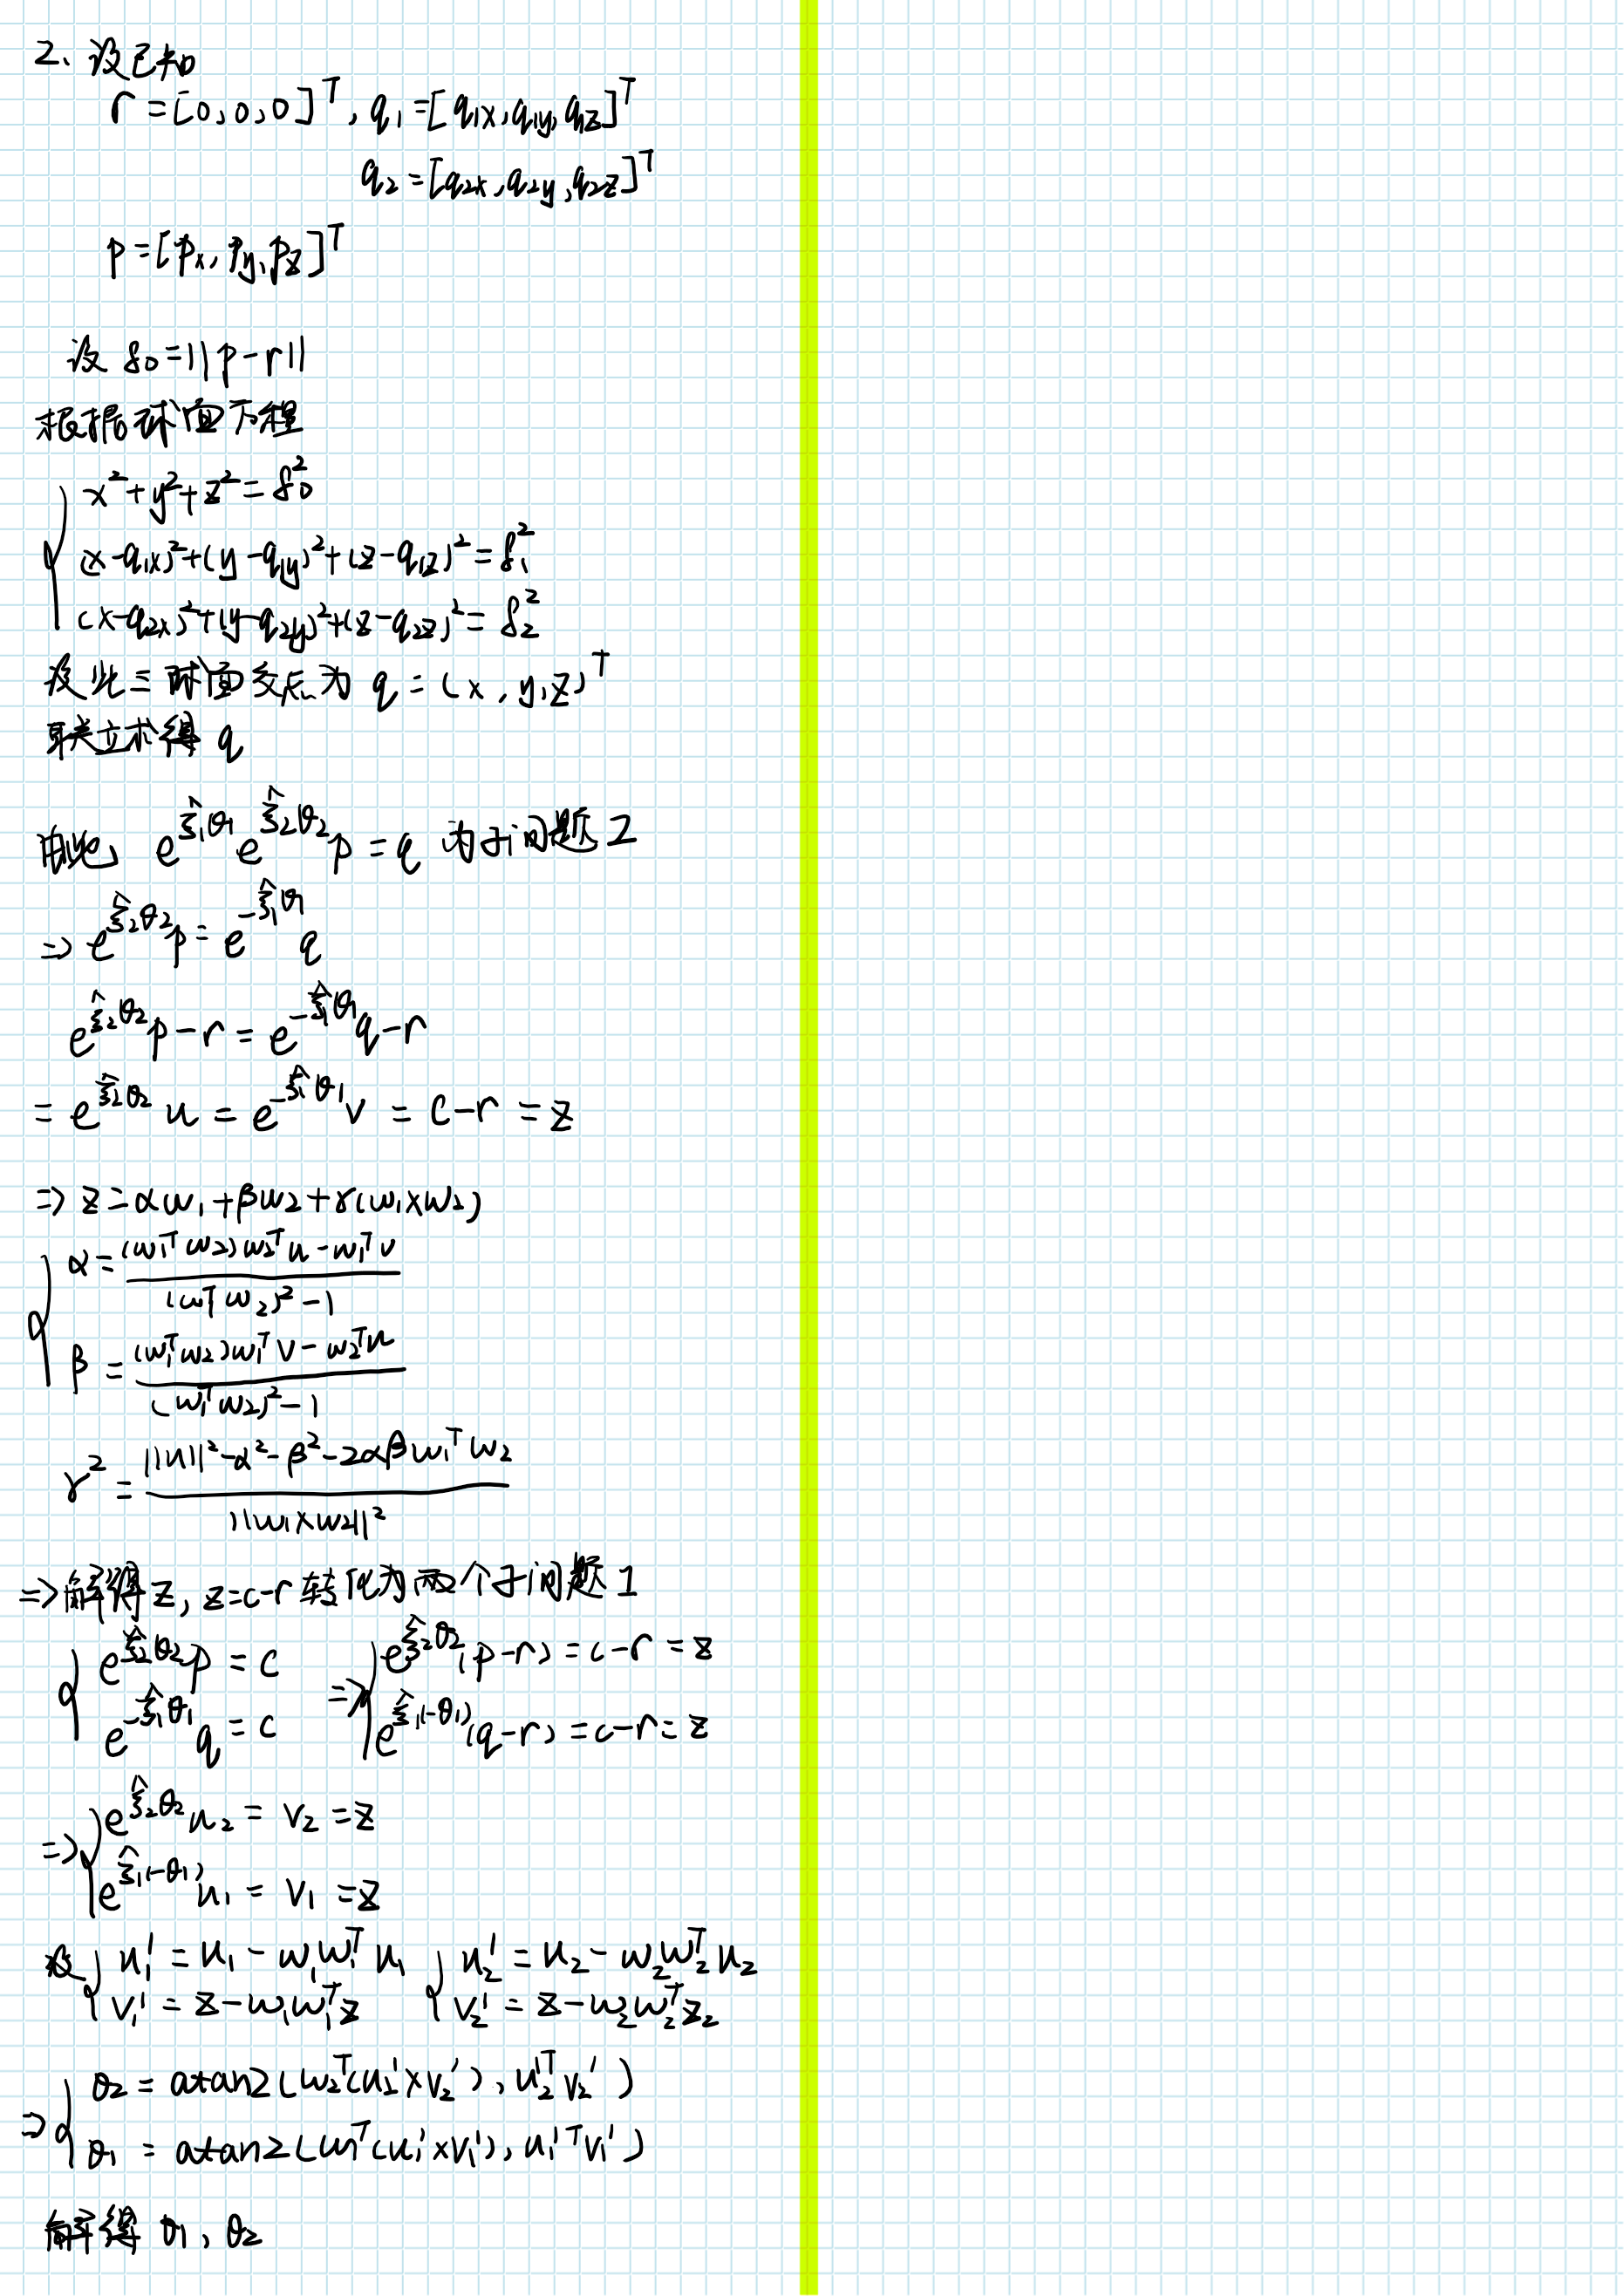 2、设已知
r = [0, 0, 0]ᵀ, q₁ = [q₁ₓ, q₁y, q₁z]ᵀ
q₂ = [q₂ₓ, q₂y, q₂z]ᵀ
p = [pₓ, py, pz]ᵀ
设 δ₀ = ||p - r||
根据球面方程
x² + y² + z² = δ₀²
(x - q₁ₓ)² + (y - q₁y)² + (z - q₁z)² = δ₁²
(x - q₂ₓ)² + (y - q₂y)² + (z - q₂z)² = δ₂²
设此三球面交点为 q = (x, y, z)ᵀ
联立求得 q
由此 e^{ξ̂₁θ₁} e^{ξ̂₂θ₂} p = q 为子问题2
⇒ e^{ξ̂₂θ₂} p = e^{-ξ̂₁θ₁} q
e^{ξ̂₂θ₂} p - r = e^{-ξ̂₁θ₁} q - r
= e^{ξ̂₂θ₂} u = e^{-ξ̂₁θ₁} v = c - r = z
⇒ z = αω₁ + βω₂ + γ(ω₁×ω₂)
α = ((ω₁ᵀω₂)ω₂ᵀu - ω₁ᵀv) / ((ω₁ᵀω₂)² - 1)
β = ((ω₁ᵀω₂)ω₁ᵀv - ω₂ᵀu) / ((ω₁ᵀω₂)² - 1)
γ² = (||u||² - α² - β² - 2αβω₁ᵀω₂) / ||ω₁×ω₂||²
⇒ 解得z, z=c-r 转化为两个子问题1
e^{ξ̂₂θ₂} p = c ⇒ e^{ξ̂₂θ₂}(p - r) = c - r = z
e^{-ξ̂₁θ₁} q = c e^{ξ̂₁(-θ₁)}(q - r) = c - r = z
⇒ e^{ξ̂₂θ₂} u₂ = v₂ = z
e^{ξ̂₁(-θ₁)} u₁ = v₁ = z
设 u₁' = u₁ - ω₁ω₁ᵀu₁ u₂' = u₂ - ω₂ω₂ᵀu₂
v₁' = z - ω₁ω₁ᵀz v₂' = z - ω₂ω₂ᵀz₂
⇒ θ₂ = atan2(ω₂ᵀ(u₂'×v₂'), u₂'ᵀv₂')
θ₁ = atan2(ω₁ᵀ(u₁'×v₁'), u₁'ᵀv₁')
解得 θ₁, θ₂